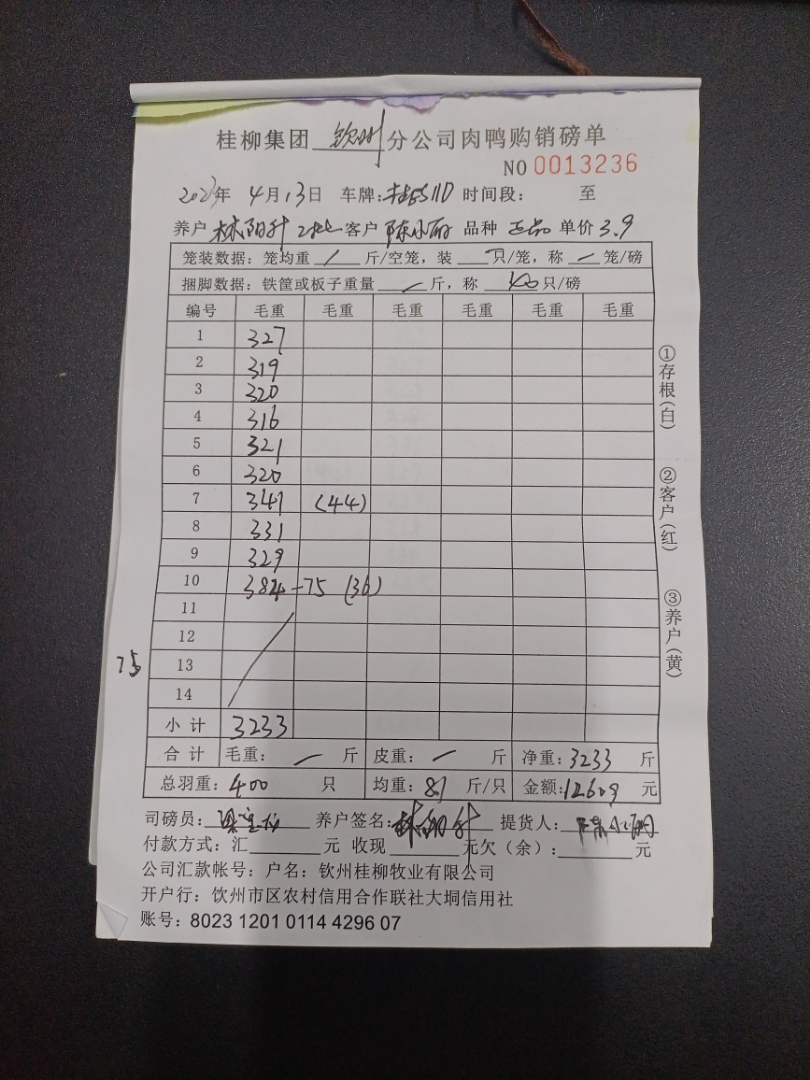 桂柳集团 钦州 分公司肉鸭购销磅单
NO 0013236
2023年 4月13日 车牌: 时间段: 至
养户 林阳升 客户 陈小丽 品种 正品 单价 3.9
笼装数据: 笼均重 / 斤/空笼, 装 只/笼, 称 笼/磅
捆脚数据: 铁筐或板子重量 斤, 称 40 只/磅
编号 毛重 毛重 毛重 毛重 毛重 毛重
1 327
2 319
3 320
4 316
5 321
6 320
7 341 (44)
8 331
9 329
10 384-75 (36)
11
12
75 13
14
小计 3233
合计 毛重: 斤 皮重: 斤 净重: 3233 斤
总羽重: 400 只 均重: 8.1 斤/只 金额: 12609 元
司磅员: 养户签名: 林阳升 提货人:
付款方式: 汇 元 收现 元欠(余): 元
公司汇款帐号: 户名: 钦州桂柳牧业有限公司
开户行: 饮州市区农村信用合作联社大垌信用社
账号: 8023 1201 0114 4296 07
①存根(白) ②客户(红) ③养户(黄)